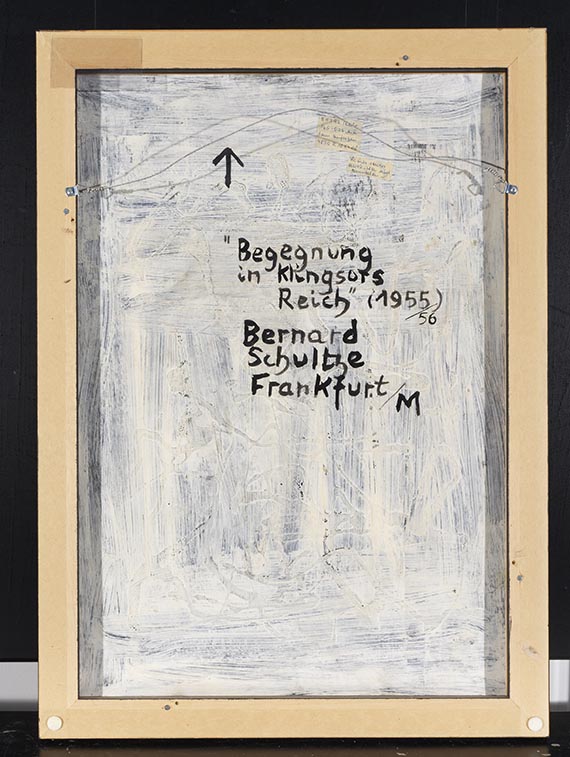 "Begegnung
in Klingsors
Reich" (1955)
/56
Bernard
Schultze
Frankfurt/M